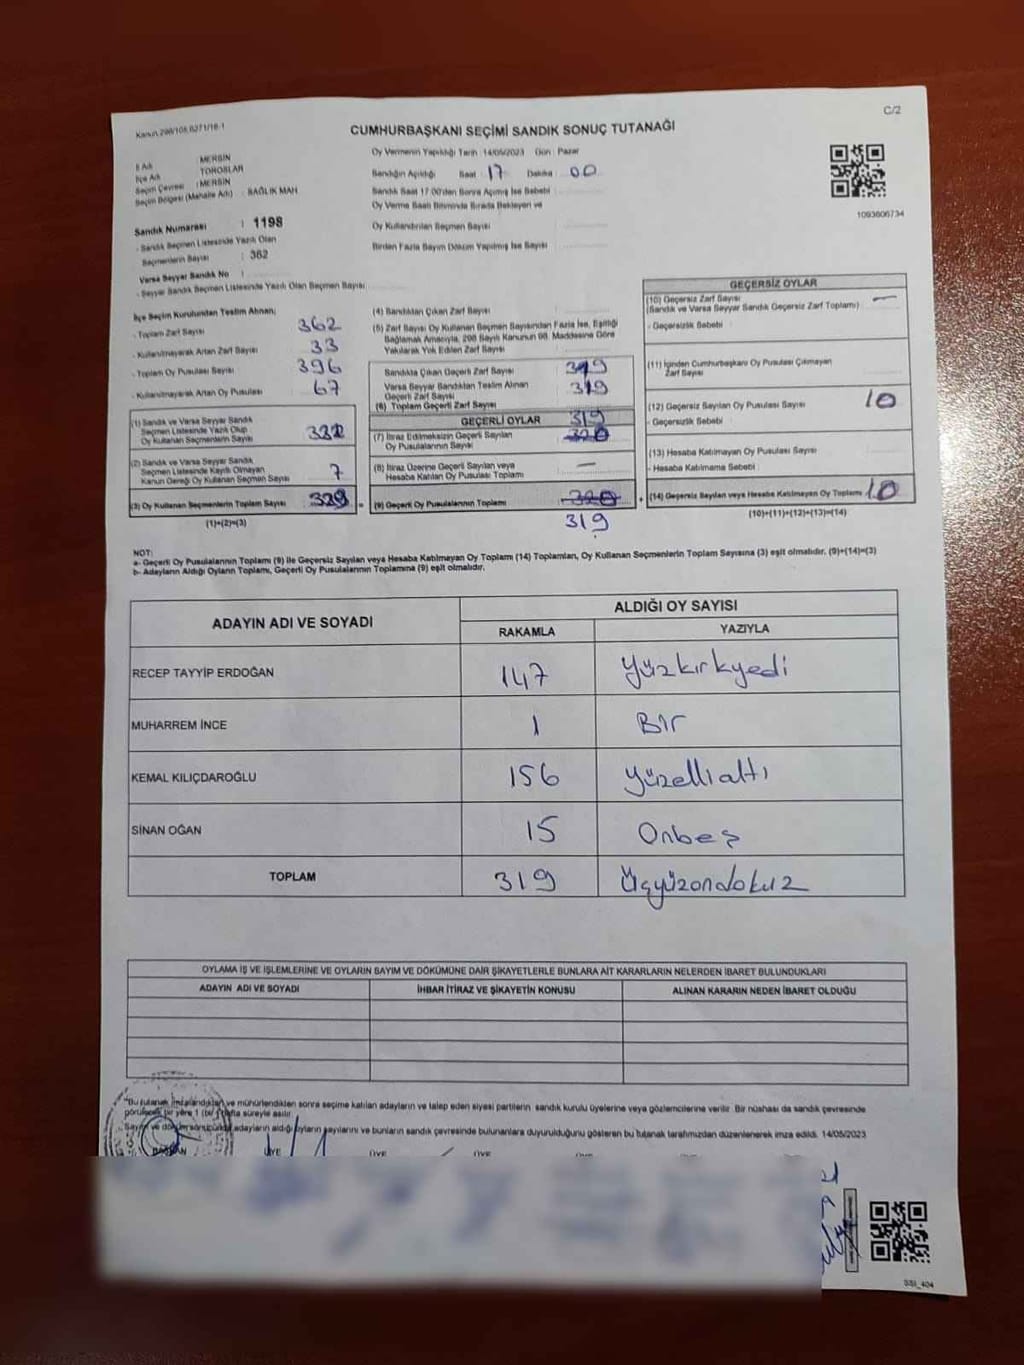 Kanun 298/105,6271/16-1
C/2
CUMHURBAŞKANI SEÇİMİ SANDIK SONUÇ TUTANAĞI
İl Adı : MERSİN
İlçe Adı : TOROSLAR
Seçim Çevresi : MERSİN
Seçim Bölgesi (Mahalle Adı) : SAĞLIK MAH
Sandık Numarası : 1198
- Sandık Seçmen Listesinde Yazılı Olan
Seçmenlerin Sayısı : 362
Varsa Seyyar Sandık No :
- Seyyar Sandık Seçmen Listesinde Yazılı Olan Seçmen Sayısı
Oy Vermenin Yapıldığı Tarih : 14/05/2023 Gün : Pazar
Sandığın Açıldığı Saat : 17 Dakika : 00
Sandık Saat 17.00'den Sonra Açılmış İse Sebebi
Oy Verme Saati Bitiminde Sırada Bekleyen ve
Oy Kullandırılan Seçmen Sayısı
Birden Fazla Sayım Döküm Yapılmış İse Sayısı
1093606734
İlçe Seçim Kurulundan Teslim Alınan;
- Toplam Zarf Sayısı 362
- Kullanılmayarak Artan Zarf Sayısı 33
- Toplam Oy Pusulası Sayısı 396
- Kullanılmayarak Artan Oy Pusulası 67
(1) Sandık ve Varsa Seyyar Sandık
Seçmen Listesinde Yazılı Olup
Oy Kullanan Seçmenlerin Sayısı
(2) Sandık ve Varsa Seyyar Sandık
Seçmen Listesinde Kayıtlı Olmayan
Kanun Gereği Oy Kullanan Seçmen Sayısı 7
(3) Oy Kullanan Seçmenlerin Toplam Sayısı 329
(1)+(2)=(3)
(4) Sandıktan Çıkan Zarf Sayısı
(5) Zarf Sayısı Oy Kullanan Seçmen Sayısından Fazla İse, Eşitliği
Bağlamak Amacıyla, 298 Sayılı Kanunun 98. Maddesine Göre
Yakılarak Yok Edilen Zarf Sayısı
Sandıkta Çıkan Geçerli Zarf Sayısı 319
Varsa Seyyar Sandıktan Teslim Alınan
Geçerli Zarf Sayısı 319
(6) Toplam Geçerli Zarf Sayısı
GEÇERLİ OYLAR 319
(7) İtiraz Edilmeksizin Geçerli Sayılan
Oy Pusulalarının Sayısı 320
(8) İtiraz Üzerine Geçerli Sayılan veya
Hesaba Katılan Oy Pusulası Toplamı —
(9) Geçerli Oy Pusulalarının Toplamı 320
319
GEÇERSİZ OYLAR
(10) Geçersiz Zarf Sayısı —
(Sandık ve Varsa Seyyar Sandık Geçersiz Zarf Toplamı)
- Geçersizlik Sebebi
(11) İçinden Cumhurbaşkanı Oy Pusulası Çıkmayan
Zarf Sayısı
(12) Geçersiz Sayılan Oy Pusulası Sayısı 10
- Geçersizlik Sebebi
(13) Hesaba Katılmayan Oy Pusulası Sayısı
- Hesaba Katılmama Sebebi
(14) Geçersiz Sayılan veya Hesaba Katılmayan Oy Toplamı 10
(10)+(11)+(12)+(13)=(14)
NOT:
a- Geçerli Oy Pusulalarının Toplamı (9) ile Geçersiz Sayılan veya Hesaba Katılmayan Oy Toplamı (14) Toplamları, Oy Kullanan Seçmenlerin Toplam Sayısına (3) eşit olmalıdır. (9)+(14)=(3)
b- Adayların Aldığı Oyların Toplamı, Geçerli Oy Pusulalarının Toplamına (9) eşit olmalıdır.
ADAYIN ADI VE SOYADI
ALDIĞI OY SAYISI
RAKAMLA YAZIYLA
RECEP TAYYİP ERDOĞAN 147 Yüzkırkyedi
MUHARREM İNCE 1 Bır
KEMAL KILIÇDAROĞLU 156 Yüzelli altı
SİNAN OĞAN 15 Onbeş
TOPLAM 319 Üçyüzondokuz
OYLAMA İŞ VE İŞLEMLERİNE VE OYLARIN SAYIM VE DÖKÜMÜNE DAİR ŞİKAYETLERLE BUNLARA AİT KARARLARIN NELERDEN İBARET BULUNDUKLARI
ADAYIN ADI VE SOYADI İHBAR İTİRAZ VE ŞİKAYETİN KONUSU ALINAN KARARIN NEDEN İBARET OLDUĞU
"Bu tutanak imzalandıktan ve mühürlendikten sonra seçime katılan adayların ve talep eden siyasi partilerin sandık kurulu üyelerine veya gözlemcilerine verilir. Bir nüshası da sandık çevresinde
görülecek bir yere 1 (bir) hafta süreyle asılır.
Sayım ve döküm sonucunda adayların aldığı oyların sayılarını ve bunların sandık çevresinde bulunanlara duyurulduğunu gösteren bu tutanak tarafımızdan düzenlenerek imza edildi. 14/05/2023
BAŞKAN ÜYE ÜYE ÜYE
SSI_404